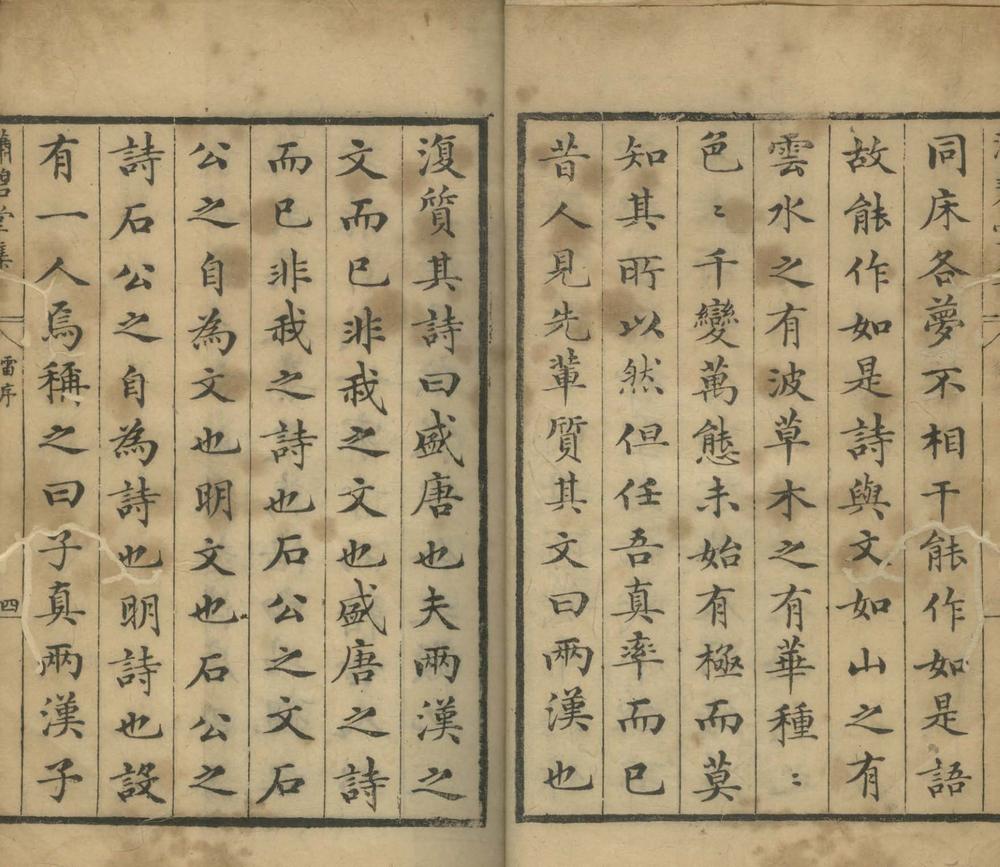 同床各夢不相干能作如是語
故能作如是詩與文如山之有
雲水之有波草木之有華種〻
色〻千變萬態未始有極而莫
知其所以然但任吾真率而已
昔人見先輩質其文曰兩漢也
復質其詩曰盛唐也夫兩漢之
文而已非我之文也盛唐之詩
而已非我之詩也石公之文石
公之自為文也明文也石公之
詩石公之自為詩也明詩也設
有一人焉稱之曰子真兩漢子
瀟碧堂集 雷序 四